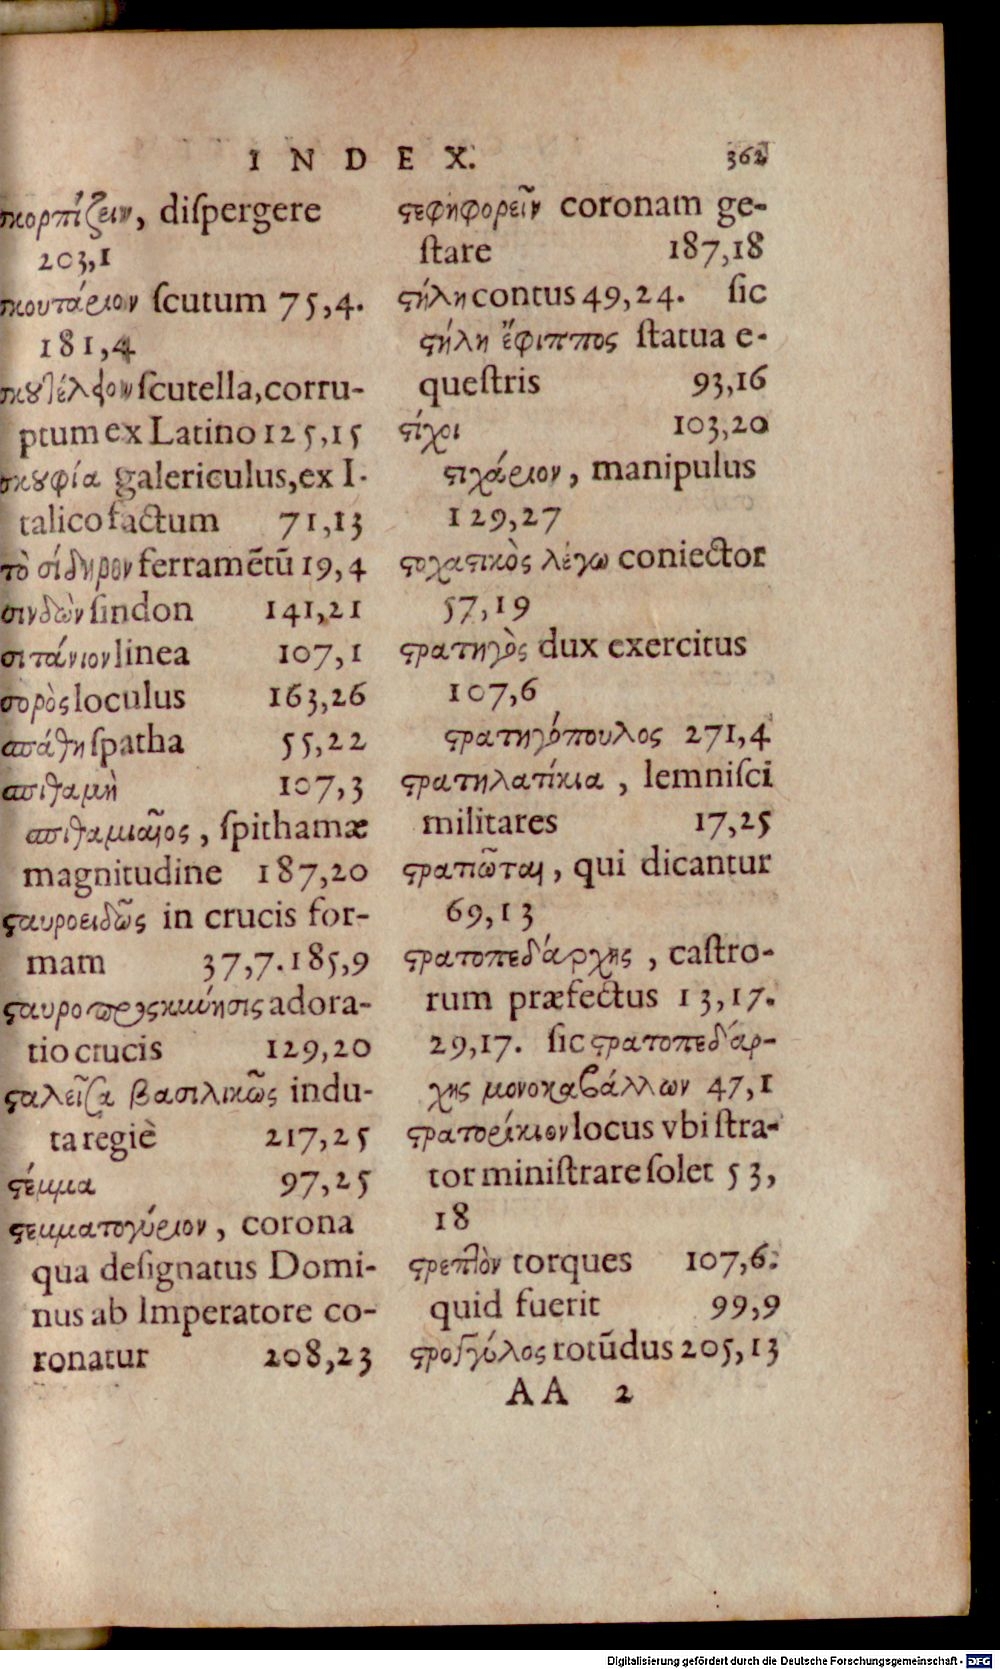 INDEX. 362
σκορπίζειν, diſpergere
203,1
σκουτάριον ſcutum 75,4.
181,4
σκȣτέλιον ſcutella, corru-
ptum ex Latino 125,15
σκȣφία galericulus, ex I-
talico factum 71,13
τὸ σίδηρον ferramẽtũ 19,4
σινδὼν ſindon 141,21
σιτάνιον linea 107,1
σορὸς loculus 163,26
σπάθη ſpatha 55,22
σπιθαμὴ 107,3
σπιθαμιαῖος, ſpithamæ
magnitudine 187,20
ϛαυροειδῶς in crucis for-
mam 37,7. 185,9
ϛαυροπροςκύνησις adora-
tio crucis 129,20
ϛαλεῖσα βασιλικῶς indu-
ta regiè 217,25
ϛέμμα 97,25
ϛεμματογύριον, corona
qua deſignatus Domi-
nus ab Imperatore co-
ronatur 208,23
ϛεφηφορεῖν coronam ge-
ſtare 187,18
ϛήλη contus 49,24. ſic
ϛήλη ἔφιππος ſtatua e-
queſtris 93,16
ϛίχοι 103,20
ϛιχάριον, manipulus
129,27
ϛοχαϛικὸς λέγω coniector
57,19
ϛρατηγὸς dux exercitus
107,6
ϛρατηγόπουλος 271,4
ϛρατηλατίκια, lemniſci
militares 17,25
ϛρατιῶται, qui dicantur
69,13
ϛρατοπεδάρχης, caſtro-
rum præfectus 13,17.
29,17. ſic ϛρατοπεδάρ-
χης μονοκαβάλλων 47,1
ϛρατορίκιον locus vbi ſtra-
tor miniſtrare ſolet 53,
18
ϛρεπτὸν torques 107,6:
quid fuerit 99,9
ϛρογγύλος rotũdus 205,13
AA 2
Digitalisierung gefördert durch die Deutsche Forschungsgemeinschaft - DFG